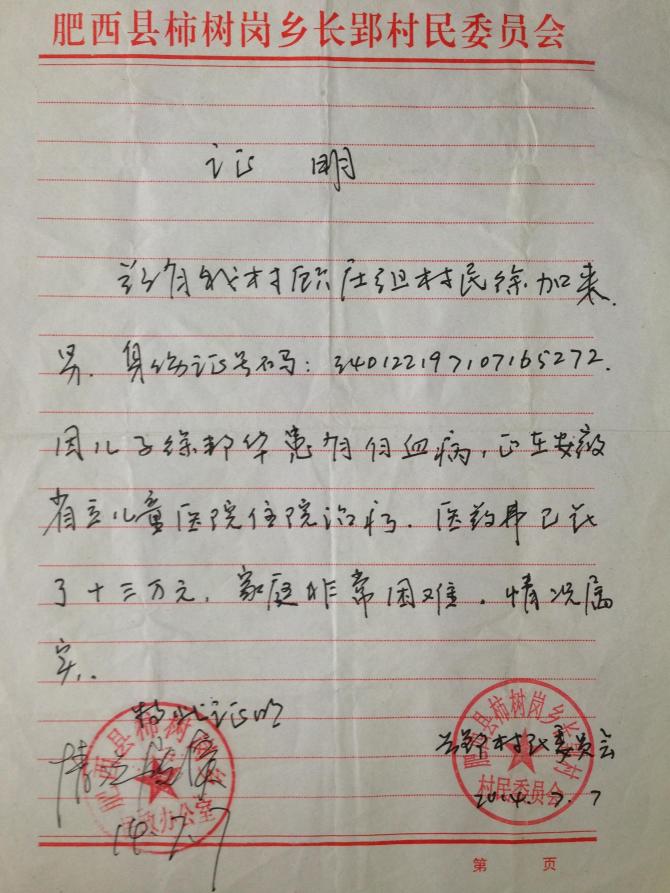 肥西县柿树岗乡长郢村民委员会
证 明
兹有我村 庄组村民徐加来,
男,身份证号码:340122197107165272.
因儿子徐邦华患有白血病,正在安徽
省立儿童医院住院治疗.医药费已花
了十三万元,家庭非常困难.情况属
实.
特此证明
情况属实
14 7/7
肥西县柿树岗乡
民政办公室
长郢村民委员会
2014.7.7
肥西县柿树岗乡长郢村
村民委员会
第 页